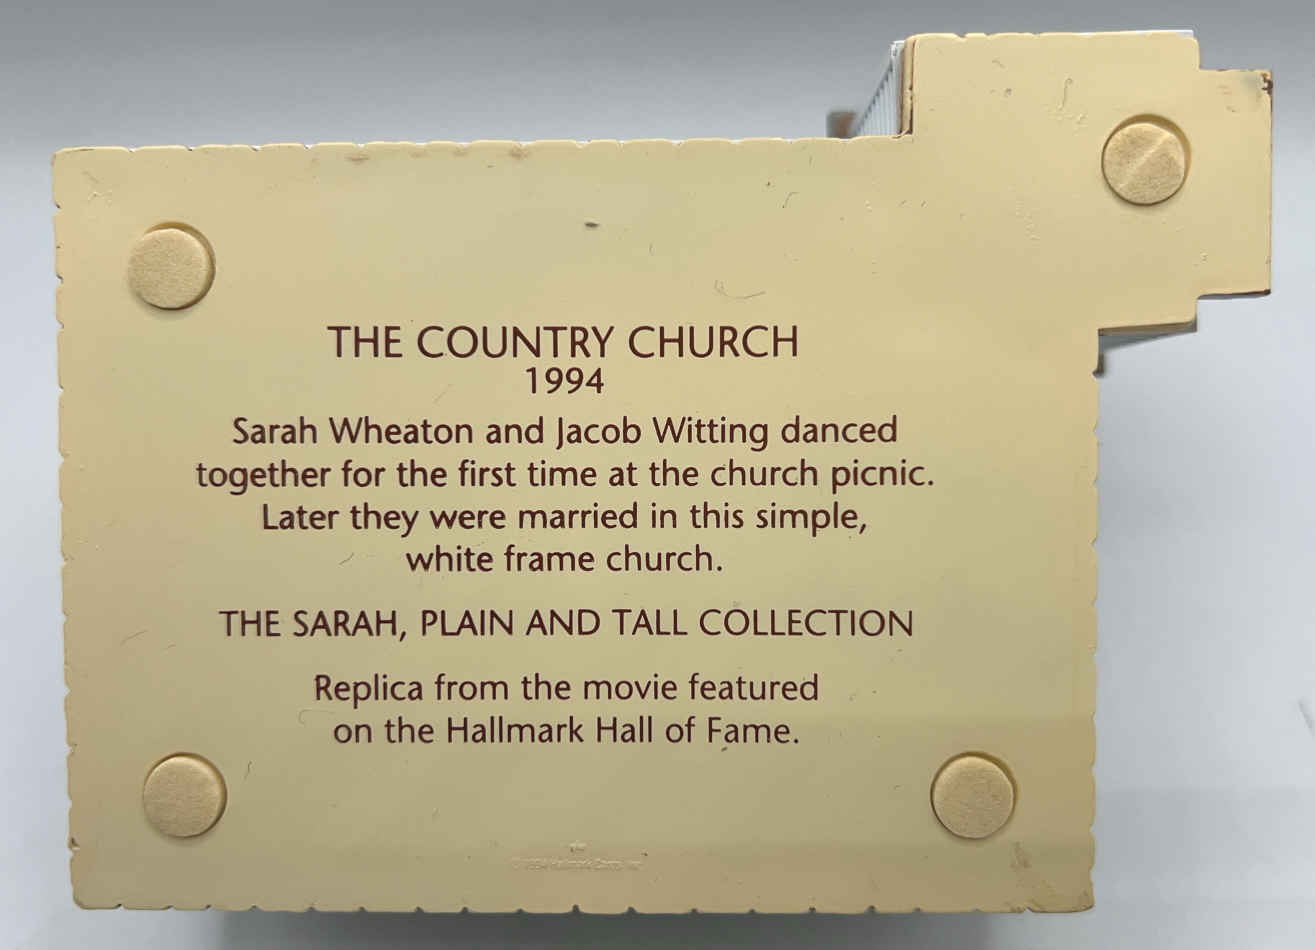 THE COUNTRY CHURCH
1994
Sarah Wheaton and Jacob Witting danced
together for the first time at the church picnic.
Later they were married in this simple,
white frame church.
THE SARAH, PLAIN AND TALL COLLECTION
Replica from the movie featured
on the Hallmark Hall of Fame.
© 1994 Hallmark Cards, Inc.